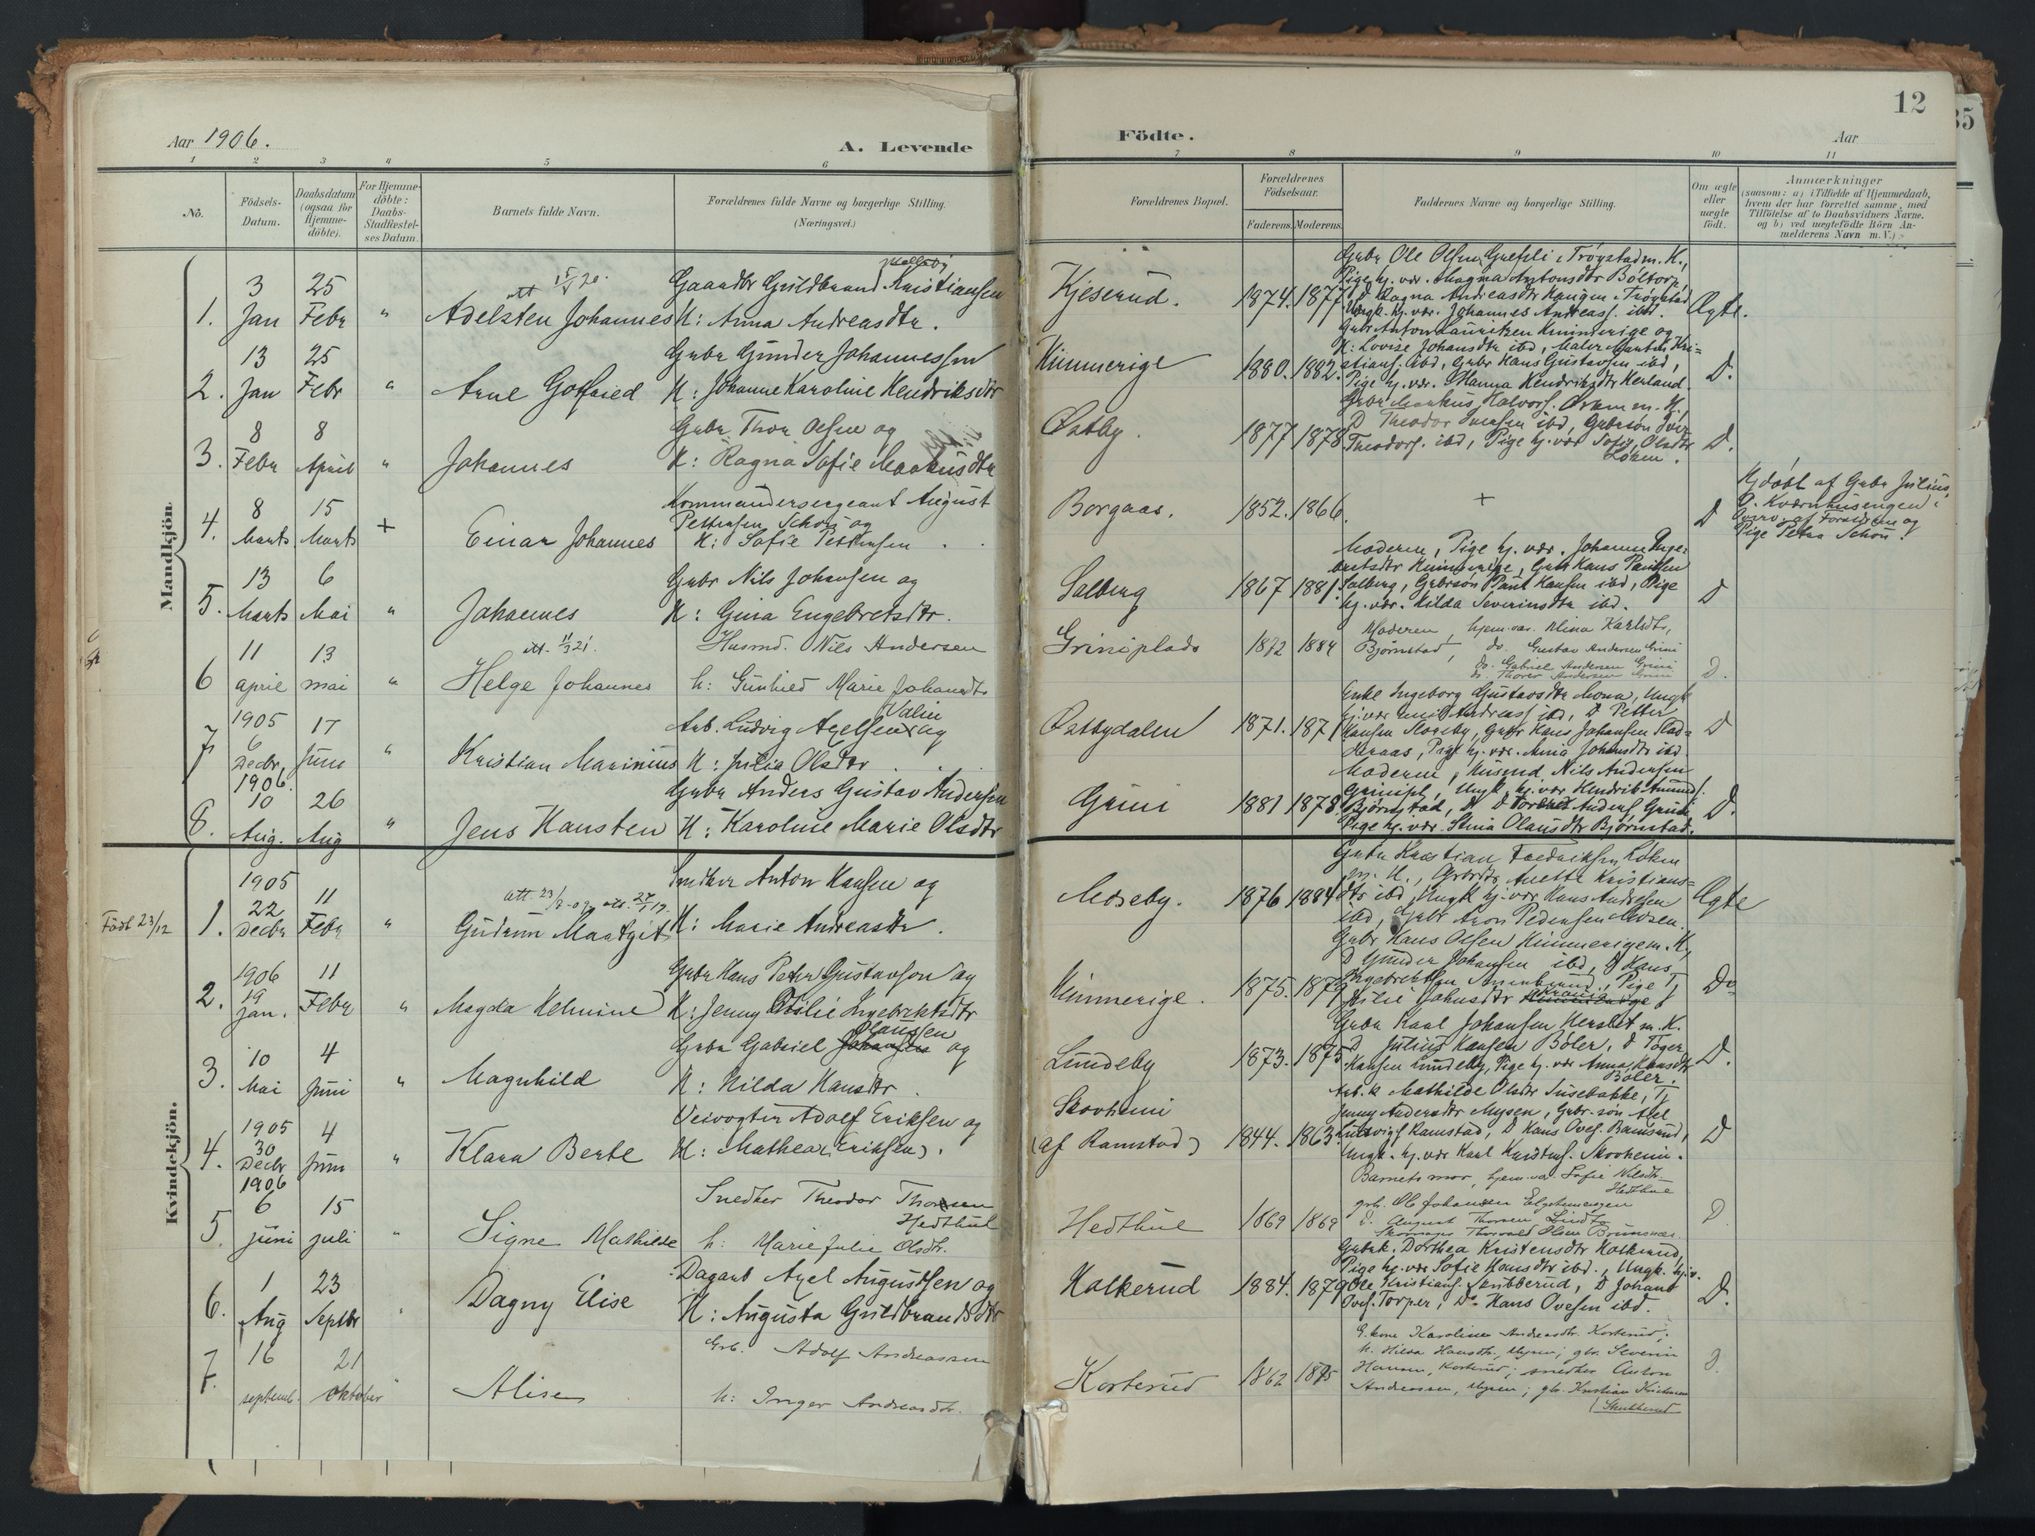 12
35
Aar 1906.
A. Levende
Födte.
Aar
1 2 3 4 5 6 7 8 9 10 11
No.
Födsels-
Datum.
Daabsdatum
(ogsaa for
Hjemme-
döbte).
For Hjemme-
döbte:
Daabs-
Stadfæstel-
ses Datum.
Barnets fulde Navn.
Forældrenes fulde Navne og borgerlige Stilling.
(Næringsvei.)
Forældrenes Bopæl.
Forældrenes
Födselsaar.
Faderens. Moderens.
Faddernes Navne og borgerlige Stilling.
Om ægte
eller
uægte
födt.
Anmærkninger
(saasom: a) i Tilfælde af Hjemmedaab,
hvem der har forrettet samme, med
Tilföielse af to Daabsvidners Navne.
og b) ved uægtefödte Börn An-
melderens Navn m. V.)
Mandkjön.
1. 3 Jan 25 Febr "
Adelsten Johannes
Gaardbr Guldbrand Kristiansen
K: Anna Andreasdtr.
Kjeserud. 1874. 1877
Gabr Ole Olsen, i Trøgstad m. K.,
Pige hj. vær. Magna Antonsdtr Böltorp,
D Ragna Andreasdtr Haugen i Trøgstad
Ungk. hj. vær. Johannes Andreass. ibd.
Ægte.
2. 13 Jan 25 Febr "
Arne Gotfried
Gabr Gunder Johannessen
K: Johanne Karoline Hendriksdtr
Kimmerige 1880. 1882.
Gabr Anton Lauritzen Kimmerige og
K: Lovise Johansdtr ibd, Maler Martin Kri-
stians. ibd, Gabr Hans Gustavsen ibd,
Pige hj. vær. Hanna Hendriksdtr Herland.
D.
3. 8 Febr 8 April "
Johannes
Gabr Thor Olsen og
K: Ragna Sofie Markusdtr
Østby. 1877 1878
Gabr Markus Halvors. Ørum m. K,
D Theodor Iversen ibd, Gabrsøn Iver
Theodors. ibd, Pige hj. vær Sofie Olsdtr
Löken.
D.
4. 8 Marts 15 Marts +
Einar Johannes
Kommandersergeant August
Pettersen Schou og
K: Sofie Pettersen
Borgaas. 1852. 1866.
+
D
Hjdöbt af Gabr Julius
O. Kværnhusengen.
Overv. af Forældrene og
Pige Petra Schou.
5. 13 Marts 6 Mai "
Johannes
Gabr Nils Johansen og
K: Gina Engebretsdtr.
Solberg 1867 1881.
Moderen, Pige hj. vær. Johanne Inge-
bretsdtr Kimmerige, Gabr Hans Paulsen
Solberg, Gabrsøn Paul Hansen ibd, Pige
hj. vær. Hilda Severinsdtr ibd.
D
6 11 april 13 mai "
att. 11/3 21.
Helge Johannes
Husmd. Nils Andersen
h: Gunhild Marie Johansdtr
Griniplads 1872 1884
Moderen, hjem. vær. Mina Karlsdtr,
Björnstad, do. Gustav Andersen Grini
do. Gabriel Andersen Grini
do. Thorer Andersen Grini
D.
7. 1905 6 Decbr, 17 Juni "
Kristian Marinius
Arb. Ludvig Axelsen Valin og
K: Julia Olsdtr
Østbydalen 1871. 1871
Enke Ingeborg Gustavsdtr Mona, Ungk
hj. vær Emil Andreass. ibd, D Petter
Hansen Moseby, Gabr Hans Johansen Slad-
deraas, Pige hj. vær. Anna Johansdtr ibd
D
8. 1906. 10 Aug. 26 Aug "
Jens Hansten
Gabr Anders Gustav Andersen
K: Karoline Marie Olsdtr
Grini 1881 1878.
Moderen, Husmd. Nils Andersen
Grinipl, Ungk. hj. vær Hendrik Amund.
Björnstad, D Anders. Grini
Pige hj. vær. Stina Olausdtr Björnstad.
D.
Kvindekjön.
Födt 23/12
1. 1905 22 Decbr 11 Febr "
Gudrun Margit
Snedker Anton Hansen og
K: Marie Andreasdtr.
Moseby. 1876 1884
Gabr Kristian Fredriksen Löken
m. K., Gabrdtr Anette Kristians-
dtr ibd, Ungk hj. vær Hans Andresen
ibd, Gabr Aron Pedersen Moseri
Ægte
2. 1906 19 Jan. 11 Febr "
Magda Helmine
Gabr Hans Peter Gustavson og
K: Jenny Otilie Ingebretsdtr
Kimmerige. 1875. 1879
Gabr Hans Olsen Kimmerige m. K,
D Gunder Johansen ibd, D Hans
Ingebretsen Annenberud, Pige T,
Hilie Johnsdtr
Do
3. 10 Mai 4 Juni "
Magnhild
Gabr Gabriel Johansen Olaussen og
K: Hilda Hansdtr.
Lundeby 1873. 1875.
Gabr Karl Johansen Hersbet m. K.
D Julius Hansen Böler, D Töger
Hansen Lundeby, Pige hj. vær Anna Hansdtr
Böler.
D.
4. 1905 30 Decbr 4 Juni "
Klara Berte
Veivogter Adolf Eriksen og
K: Mathea Eriksen.
Skovheim
(af Ramstad) 1844. 1863.
Arb. k Mathilde Olsdtr Susebakke, Tj
Jenny Andersdtr Mysen, Gabr. søn Axel
Ludvigs Ramstad, D Hans Oves. Ramsrud,
Ungk. hj. vær Karl Kristians. Skovheim.
D
5. 1906 6 juni 15 juli "
Signe Mathilde
Snedker Theodor Thorsen
Hedthul
h: Marie Julie Olsdtr.
Hedthul 1869 1869
Barnets mor, hjem. vær. Sofie Nilsdtr
Hedthul
grb. Ole Johansen Elgshuengen
d. August Thorsen Lindt
Skomager Thorvald Olsen Brunsnæs.
D.
6. 1 Aug 23 Septbr "
Dagny Elise
Dagarb Axel Augustsen og
K: Augusta Guldbrandsdtr
Kolkerud 1884. 1879
Gabrk. Dorthea Kristensdtr Kolkerud,
Pige hj. vær Sofie Hansdtr ibd., Ungk. hj. v.
Ole Kristians. Skubberud, D Johans
Oves. Torper, Do Hans Ovesen ibd.
D.
7. 16 septemb. 21 oktober "
Alise
Grb. Adolf Andreassen
h: Inger Andreasdtr.
Korterud 1862 1875
G. kone Karoline Andreasdtr. Korterud;
h. Hilda Hansdtr., Mysen; gbr. Severin
Hansen, Korterud; snedker Anton
Andreassen, Mysen; gbr. Kristian
Skubberud
D.